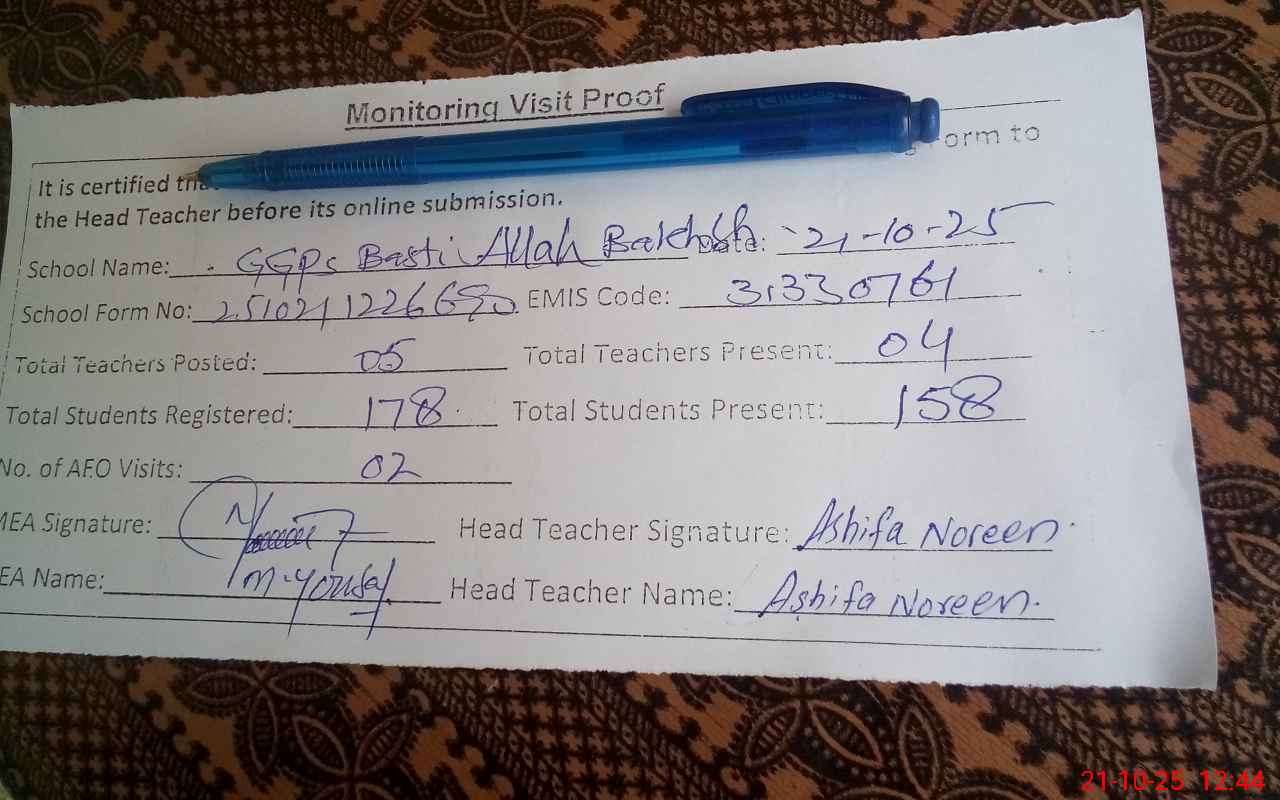 Monitoring Visit Proof
It is certified tha form to
the Head Teacher before its online submission.
School Name: GGPS Basti Allah Bakhsh Date: 21-10-25
School Form No: 251021122668 EMIS Code: 31330761
Total Teachers Posted: 05 Total Teachers Present: 04
Total Students Registered: 178 Total Students Present: 158
No. of AEO Visits: 02
MEA Signature: Head Teacher Signature: Ashifa Noreen
EA Name: M. Yousaf Head Teacher Name: Ashifa Noreen.
21-10-25 12:44